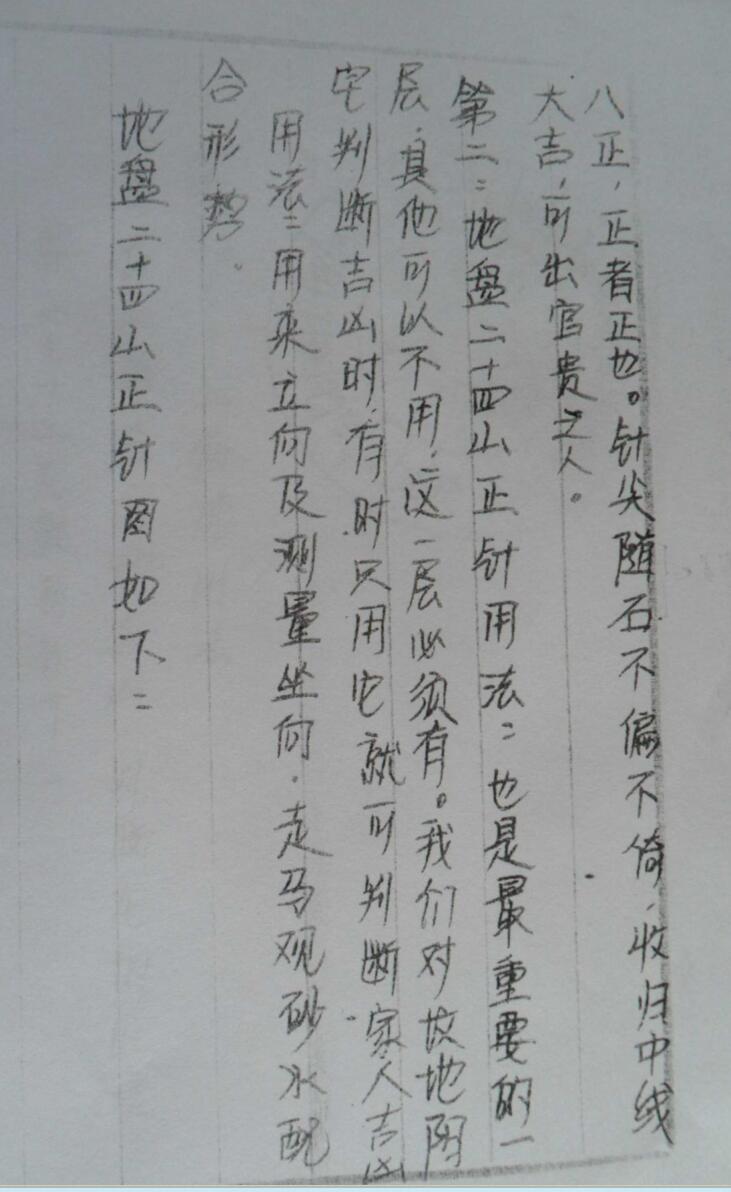 八正，正者正也。针尖随石不偏不倚，收归中线
大吉，可出官贵之人。
第二：地盘二十四山正针用法：也是最重要的一
层，其他可以不用，这一层必须有。我们对故地阴
宅判断吉凶时，有时只用它就可判断家人吉凶
用法：用来立向及测量坐向，走马观砂水配
合形势。
地盘二十四山正针图如下：